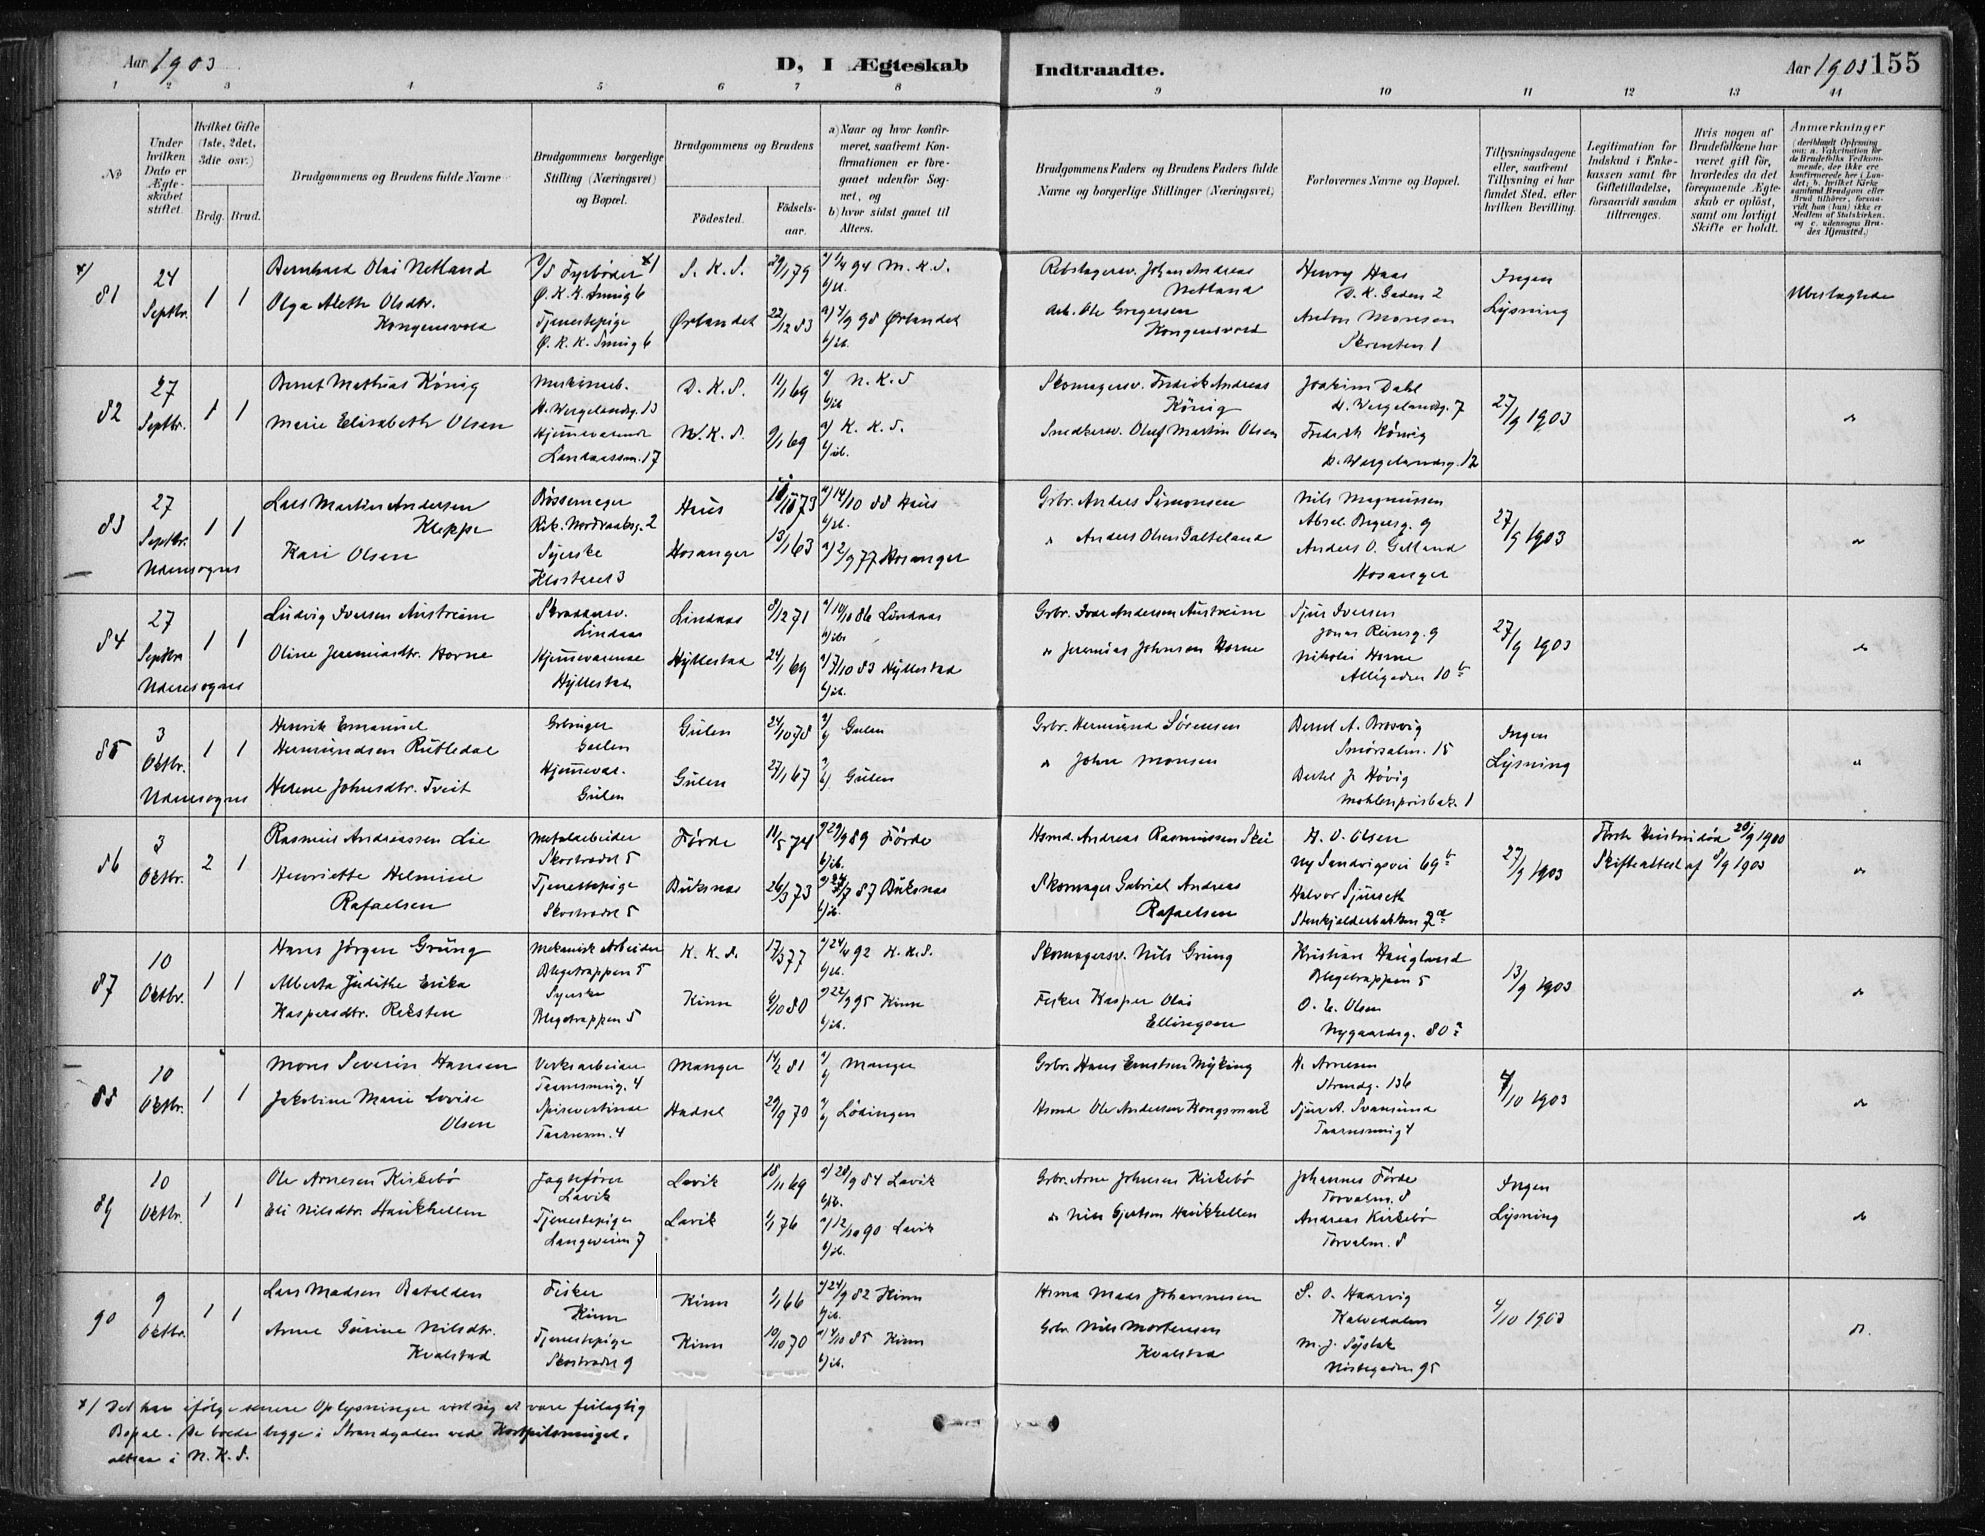 Aar 1903
D, I Ægteskab
Indtraadte.
Aar 1903 155
1 2 3 4 5 6 7 8 9 10 11 12 13 14
No
Under hvilken Dato er Ægteskabet stiftet.
Hvilket Gifte (1ste, 2det, 3die osv.)
Brdg. Brud.
Brudgommens og Brudens fulde Navne
Brudgommens borgerlige Stilling (Næringsvei) og Bopæl.
Brudgommens og Brudens
Födested.
Födselsaar.
a) Naar og hvor konfirmeret, saafremt Konfirmationen er foregaaet udenfor Sognet, og
b) hvor sidst gaaet til Alters.
Brudgommens Faders og Brudens Faders fulde Navne og borgerlige Stillinger (Næringsvei)
Forlovernes Navne og Bopæl.
Tillysningsdagene eller, saafremt Tillysning ei har fundet Sted, efter hvilken Bevilling.
Legitimation for Indskud i Enkekassen samt for Giftetilladelse, forsaavidt saadan tiltrænges.
Hvis nogen af Brudefolkene har været gift för, hvorledes da det foregaaende Ægteskab er oplöst, samt om lovligt Skifte er holdt.
Anmærkninger
x) 81
24 Septbr.
1 1
Bernhard Olai Netland
Olga Alethe Olsdtr. Kongensvold
D/S Fyrböder x)
Ø. K. K. Smug 6
Tjenestepige
Ø. K. K. Smug 6
S. K. S. 29/1 79
Ørlandet 22/12 83
a) 1/4 94 M. K. S.
b) d.
a) 4/9 98 Ørlandet
b) ib.
Rebslagersv. Johan Andreas Netland
Arb. Ole Gregersen Kongensvold
Henry Haas
D. K. Gaden 2
Anton Monsen
Skrenten 1
Ingen Lysning
Ubeslægtede
82
27 Septbr.
1 1
Bernt Mathias König
Marie Elisabeth Olsen
Maskinarb.
H. Wergelandsg. 13
Hjemmeværende
Landaassm. 17
D. K. S. 11/1 69
N. K. S. 9/1 69
a) N. K. S
b) ib
a) K. K. S.
b) ib.
Skomagersv. Fredrik Andreas König
Snedkersv. Oluf Martin Olsen
Joakim Dahl
H. Wergelandsg. 7
Fredrik König
H. Wergelandsg. 12
27/9 1903
do
83
27 Septbr.
Udensogns
1 1
Lars Martin Andersen Kleppe
Kari Olsen
Bössemager
Rik. Nordraaksg. 2
Syerske
Klosteret 3
Haus 73
Hosanger 13/1 63
a) 14/10 88 Haus
b) d.
a) 2/9 77 Hosanger
Grbr. Anders Simonsen
" Anders Olsen
Nils Magnussen
Absal. Beyersg. 9
Anders O. Gulland
Hosanger
27/9 1903
do
84
27 Septbr
Udensogns
1 1
Ludvig Iversen Austreim
Oline Jeremiasdtr. Horne
Skræddersv.
Lindaas
Hjemmeværende
Hyllestad
Lindaas 8/12 71
Hyllestad 24/1 69
a) 10/10 86 Lindaas
b) ib
a) 7/10 83 Hyllestad
b) ib.
Grbr. Ivar Andersen Austreim
" Jeremias Johnsen Horne
Sjur Iversen
Jonas Reinsg. 9
Nikolai Horne
Allégaden 10 b
27/9 1903
do
85
3 Oktbr.
Udensogns
1 1
Henrik Emanuel Hermundsen Rutledal
Helene Johnsdtr. Tveit
Grbruger
Gulen
Hjemmevær.
Gulen
Gulen 24/10 78
Gulen 27/1 67
a) b) Gulen
a) b) Gulen
Grbr. Hermund Sörensen
" John Monsen
Bernt A. Brosvig
Smörsalm. 15
Bertel J. Hövig
Möhlenprisbak. 1
Ingen Lysning
"
86
3 Oktbr.
2 1
Rasmus Andreassen Lie
Henriette Helmine Rafaelsen
Metalarbeider
Skostrædet 5
Tjenestepige
Skostrædet 5
Förde 11/5 74
Buksnas 26/3 73
a) 29/9 89 Förde
b) ib.
a) 24/7 87 Buksnas
b) ib.
Hsmd. Andreas Rasmussen Skei
Skomager Gabriel Andreas Rafaelsen
H. O. Olsen
Ny Sandvigsvei 69 b
Halvor Sjurseth
Stenkjelderbakken 7 a
27/9 1903
Första Hustru död 20/9 1900
Skifteattest af 8/9 1903
do
87
10 Oktbr.
1 1
Hans Jörgen Grung
Alberta Judithe Erika Kaspersdtr. Reksten
Mekanisk Arbeider
Blegetrappen 5
Syerske
Blegetrappen 5
K. K. S. 17/3 77
Kinn 6/10 80
a) 24/4 92 K. K. S.
b) ib.
a) 22/9 95 Kinn
b) ib.
Skomagersv. Nils Grung
Fisker Kasper Olai Ellingsen
Kristian Haugland
Blegetrappen 5
O. E. Olsen
Nygaardsg. 80 a
13/9 1903
do
88
10 Oktbr.
1 1
Mons Severin Hansen
Jakobine Marie Lovise Olsen
Verksarbeider
Taarnsmug. 4
Spisevertinde
Taarnsm. 4
Manger 14/2 81
Hadsel 29/9 70
a) b) Manger
a) b) Lödingen
Grbr. Hans Knutsen Myking
Hsmd Ole Andersen Kongsmark
H. Arnesen
Strandg. 136
Sjur A. Svansund
Taarnsmug 4
4/10 1903
do
89
10 Oktbr.
1 1
Ole Arnesen Kirkebö
Eli Nilsdtr. Haukhellen
Jagteförer
Lavik
Tjenestepige
Langeveien 7
Lavik 18/11 69
Lavik 1/1 76
a) 28/9 84 Lavik
b) ib.
a) 12/10 90 Lavik
b) ib.
Grbr. Arne Johnsen Kirkebö
do Nils Gjertsen Haukhellen
Johannes Förde
Torvalm. 8
Andreas Kirkebö
Torvalm. 8
Ingen Lysning
do
90
9 Oktbr.
1 1
Lars Madsen Batalden
Anne Gurine Nilsdtr. Kvalstad
Fisker
Kinn
Tjenestepige
Skostrædet 9
Kinn 1/1 66
Kinn 19/10 70
a) 24/9 82 Kinn
b) ib.
a) 4/10 85 Kinn
b) ib.
Hsmd Mads Johannesen
Grbr Nils Mortensen Kvalstad
S. O. Haarvig
Kalvedalen
M. J. Sylsk
Nöstegaden 95
4/10 1903
do.
x) Det har ifölge senere Oplysninger vist sig at være feilagtig
Bopæl. De boede begge i Strandgaden ved
altsaa i N. K. S.